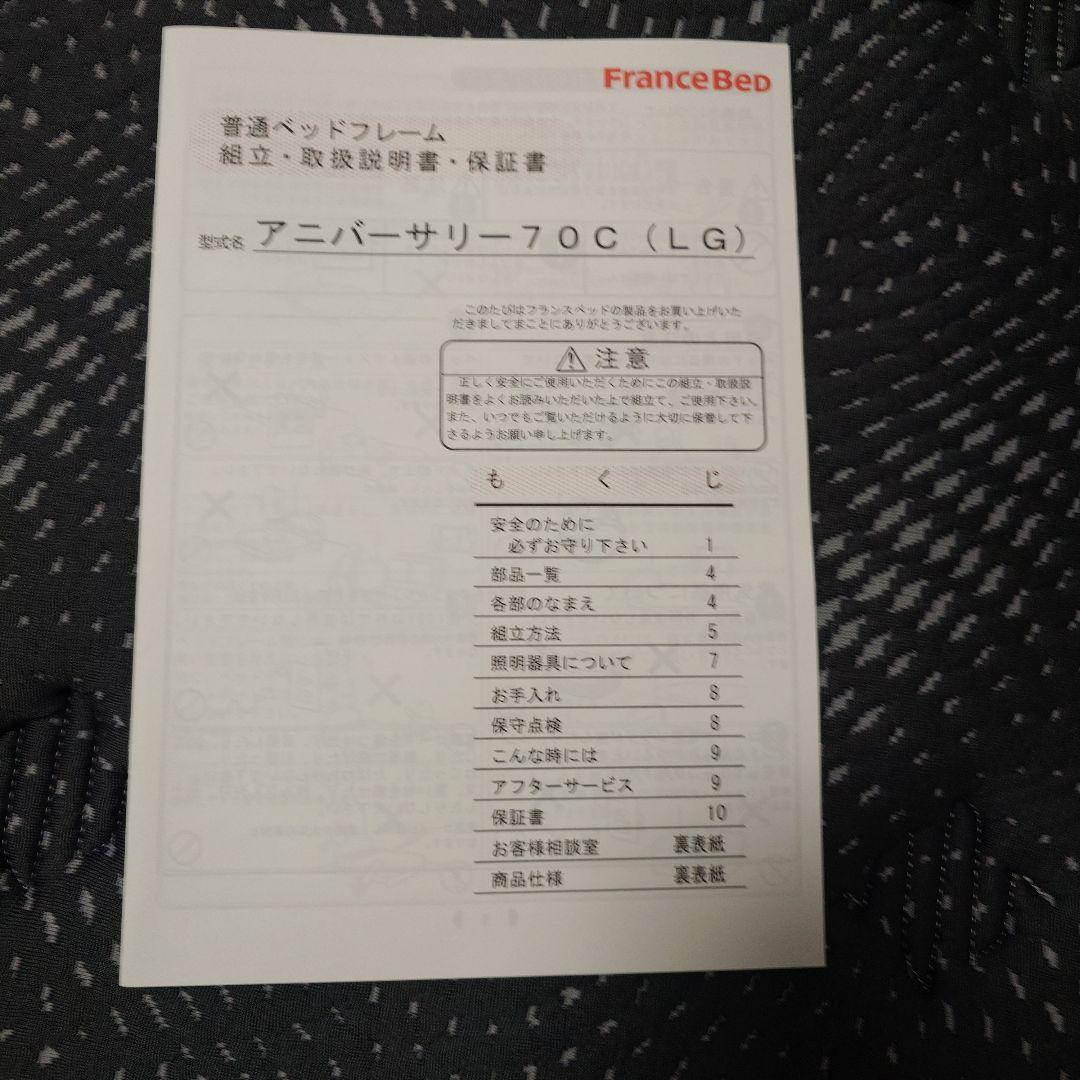 FranceBed
普通ベッドフレーム
組立・取扱説明書・保証書
型式名 アニバーサリー70C（LG）
このたびはフランスベッドの製品をお買い上げいた
だきましてまことにありがとうございます。
注意
正しく安全にご使用いただくためにこの組立・取扱説
明書をよくお読みいただいた上で組立て、ご使用下さい。
また、いつでもご覧いただけるように大切に保管して下
さるようお願い申し上げます。
もくじ
安全のために
必ずお守り下さい 1
部品一覧 4
各部のなまえ 4
組立方法 5
照明器具について 7
お手入れ 8
保守点検 8
こんな時には 9
アフターサービス 9
保証書 10
お客様相談室 裏表紙
商品仕様 裏表紙